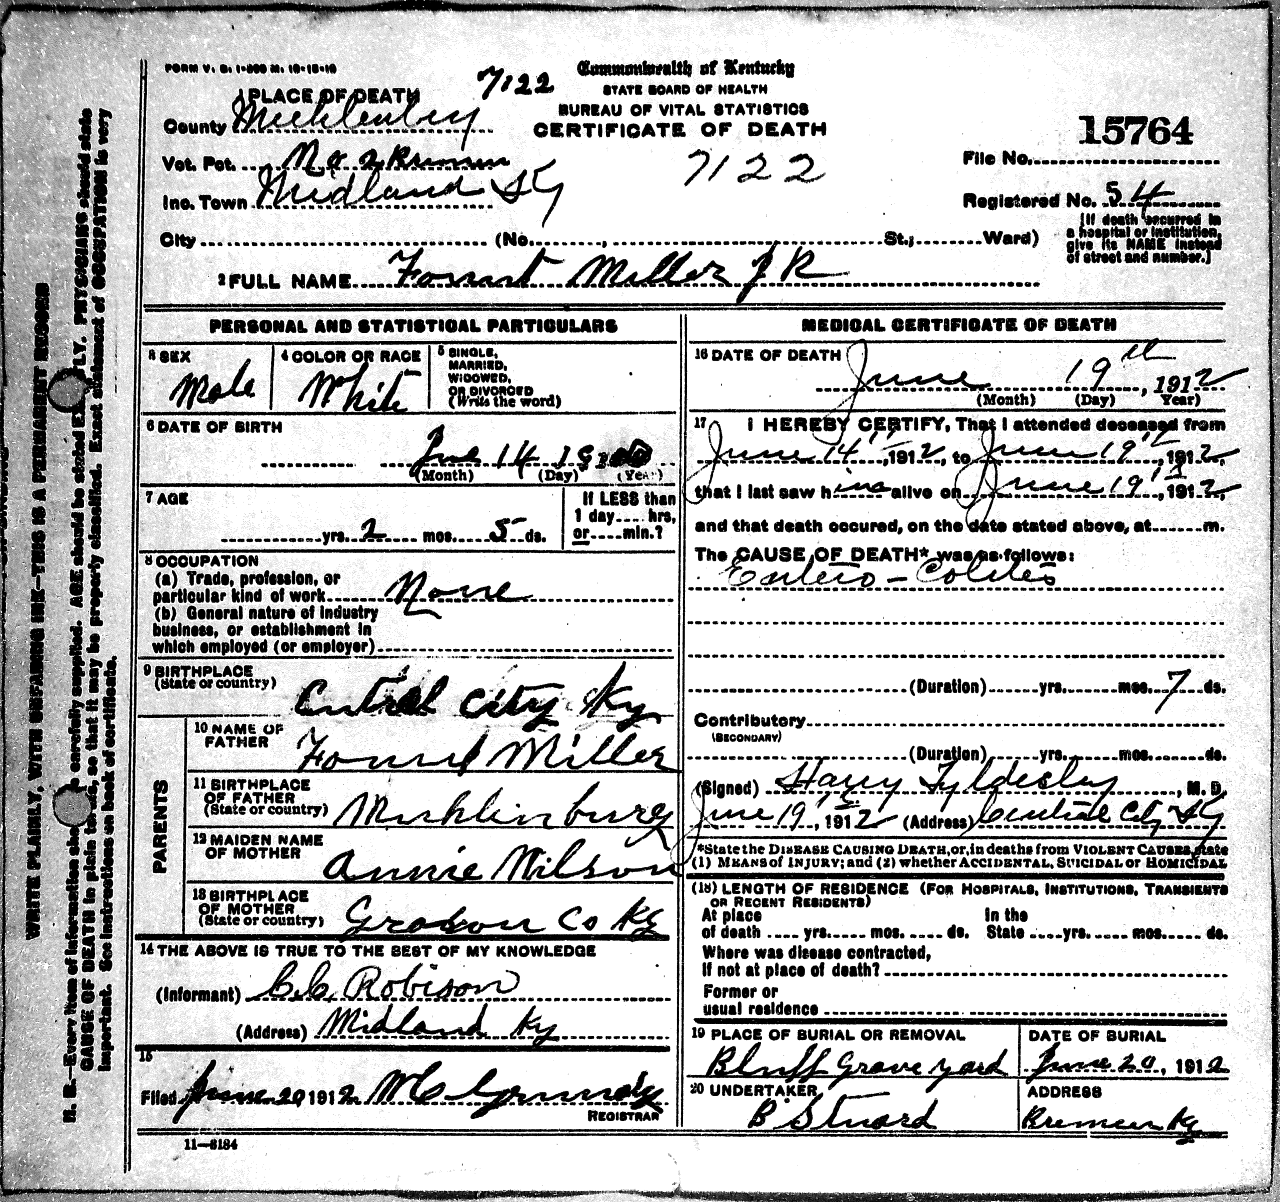 FORM V. S. 1-500 M. 10-18-10
7122
Commonwealth of Kentucky
STATE BOARD OF HEALTH
BUREAU OF VITAL STATISTICS
CERTIFICATE OF DEATH
7122
15764
File No.
Registered No. 54
[If death occurred in
a hospital or institution,
give its NAME instead
of street and number.]
1 PLACE OF DEATH
County Muhlenberg
Vot. Pct. No 2 Bremen
Inc. Town Midland Ky
City (No. , St.; Ward)
2 FULL NAME Forrest Miller JR
PERSONAL AND STATISTICAL PARTICULARS
3 SEX
Male
4 COLOR OR RACE
White
5 SINGLE,
MARRIED,
WIDOWED,
OR DIVORCED
(Write the word)
6 DATE OF BIRTH
14
(Month) (Day) (Year)
7 AGE
yrs. 2 mos. 5 ds.
If LESS than
1 day .... hrs,
or .... min.?
8 OCCUPATION
(a) Trade, profession, or
particular kind of work None
(b) General nature of industry
business, or establishment in
which employed (or employer)
9 BIRTHPLACE
(State or country)
Central City Ky
PARENTS
10 NAME OF
FATHER
Forrest Miller
11 BIRTHPLACE
OF FATHER
(State or country)
Muhlinburg
12 MAIDEN NAME
OF MOTHER
Annie Wilson
13 BIRTHPLACE
OF MOTHER
(State or country)
Grason Co Ky
14 THE ABOVE IS TRUE TO THE BEST OF MY KNOWLEDGE
(Informant) C.C. Robison
(Address) Midland Ky
15
Filed June 20 1912 M C Grundy
REGISTRAR
11—8184
MEDICAL CERTIFICATE OF DEATH
16 DATE OF DEATH
June 19th, 1912
(Month) (Day) Year)
17 I HEREBY CERTIFY, That I attended deceased from
June 14th, 1912, to June 19th, 1912,
that I last saw him alive on June 19th, 1912,
and that death occured, on the date stated above, at ...... m.
The CAUSE OF DEATH* was as follows:
Entero-Colites
(Duration) yrs. mos. 7 ds.
Contributory
(SECONDARY)
(Duration) yrs. mos. ds.
(Signed) Harry Tyldesley, M. D.
June 19th, 1912 (Address) Central City Ky
*State the DISEASE CAUSING DEATH, or, in deaths from VIOLENT CAUSES, state
(1) MEANS of INJURY; and (2) whether ACCIDENTAL, SUICIDAL or HOMICIDAL
(18) LENGTH OF RESIDENCE (FOR HOSPITALS, INSTITUTIONS, TRANSIENTS
OR RECENT RESIDENTS)
At place In the
of death .... yrs. .... mos. .... ds. State .... yrs. .... mos. .... ds.
Where was disease contracted,
If not at place of death?
Former or
usual residence
19 PLACE OF BURIAL OR REMOVAL
Bluff Grave yard
DATE OF BURIAL
June 20, 1912
20 UNDERTAKER
B. Stuard
ADDRESS
Bremen Ky
WRITE PLAINLY, WITH UNFADING INK—THIS IS A PERMANENT RECORD
N. B.—Every item of information should be carefully supplied. AGE should be stated EXACTLY. PHYSICIANS should state
CAUSE OF DEATH in plain terms, so that it may be properly classified. Exact statement of OCCUPATION is very
important. See instructions on back of certificate.